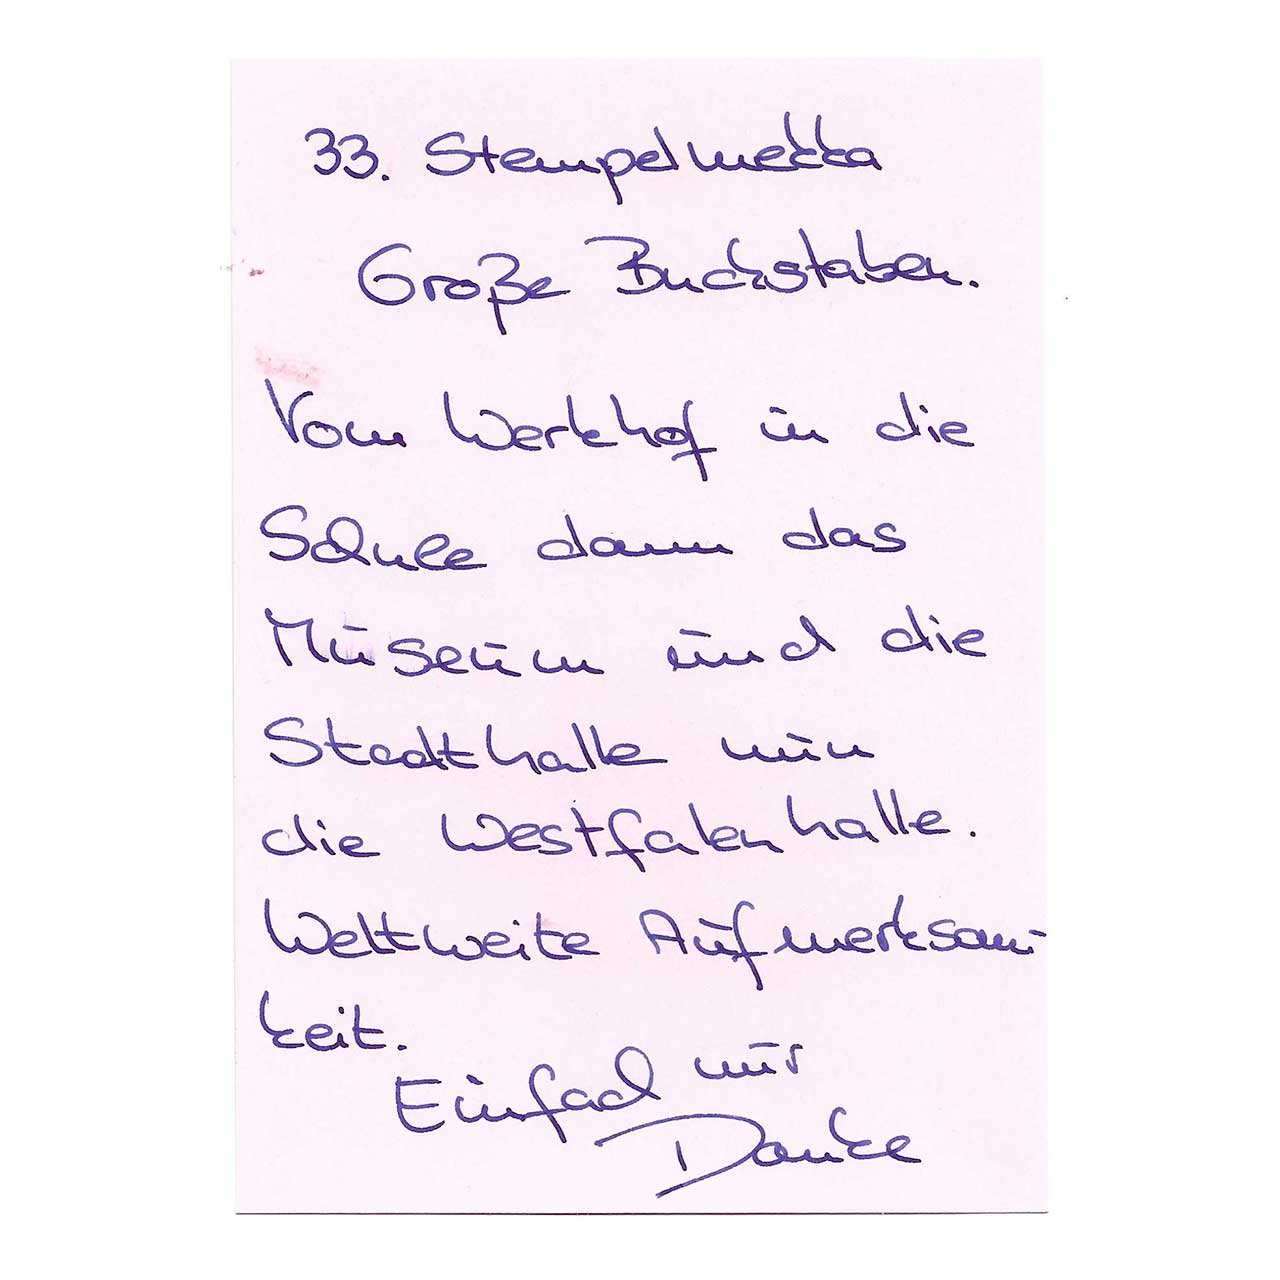 33. Stempelmekka
Große Buchstaben.
Vom Werkhof in die
Schule dann das
Museum und die
Stadthalle nun
die Westfalenhalle.
Weltweite Aufmerksam-
keit.
Einfach nur
Danke